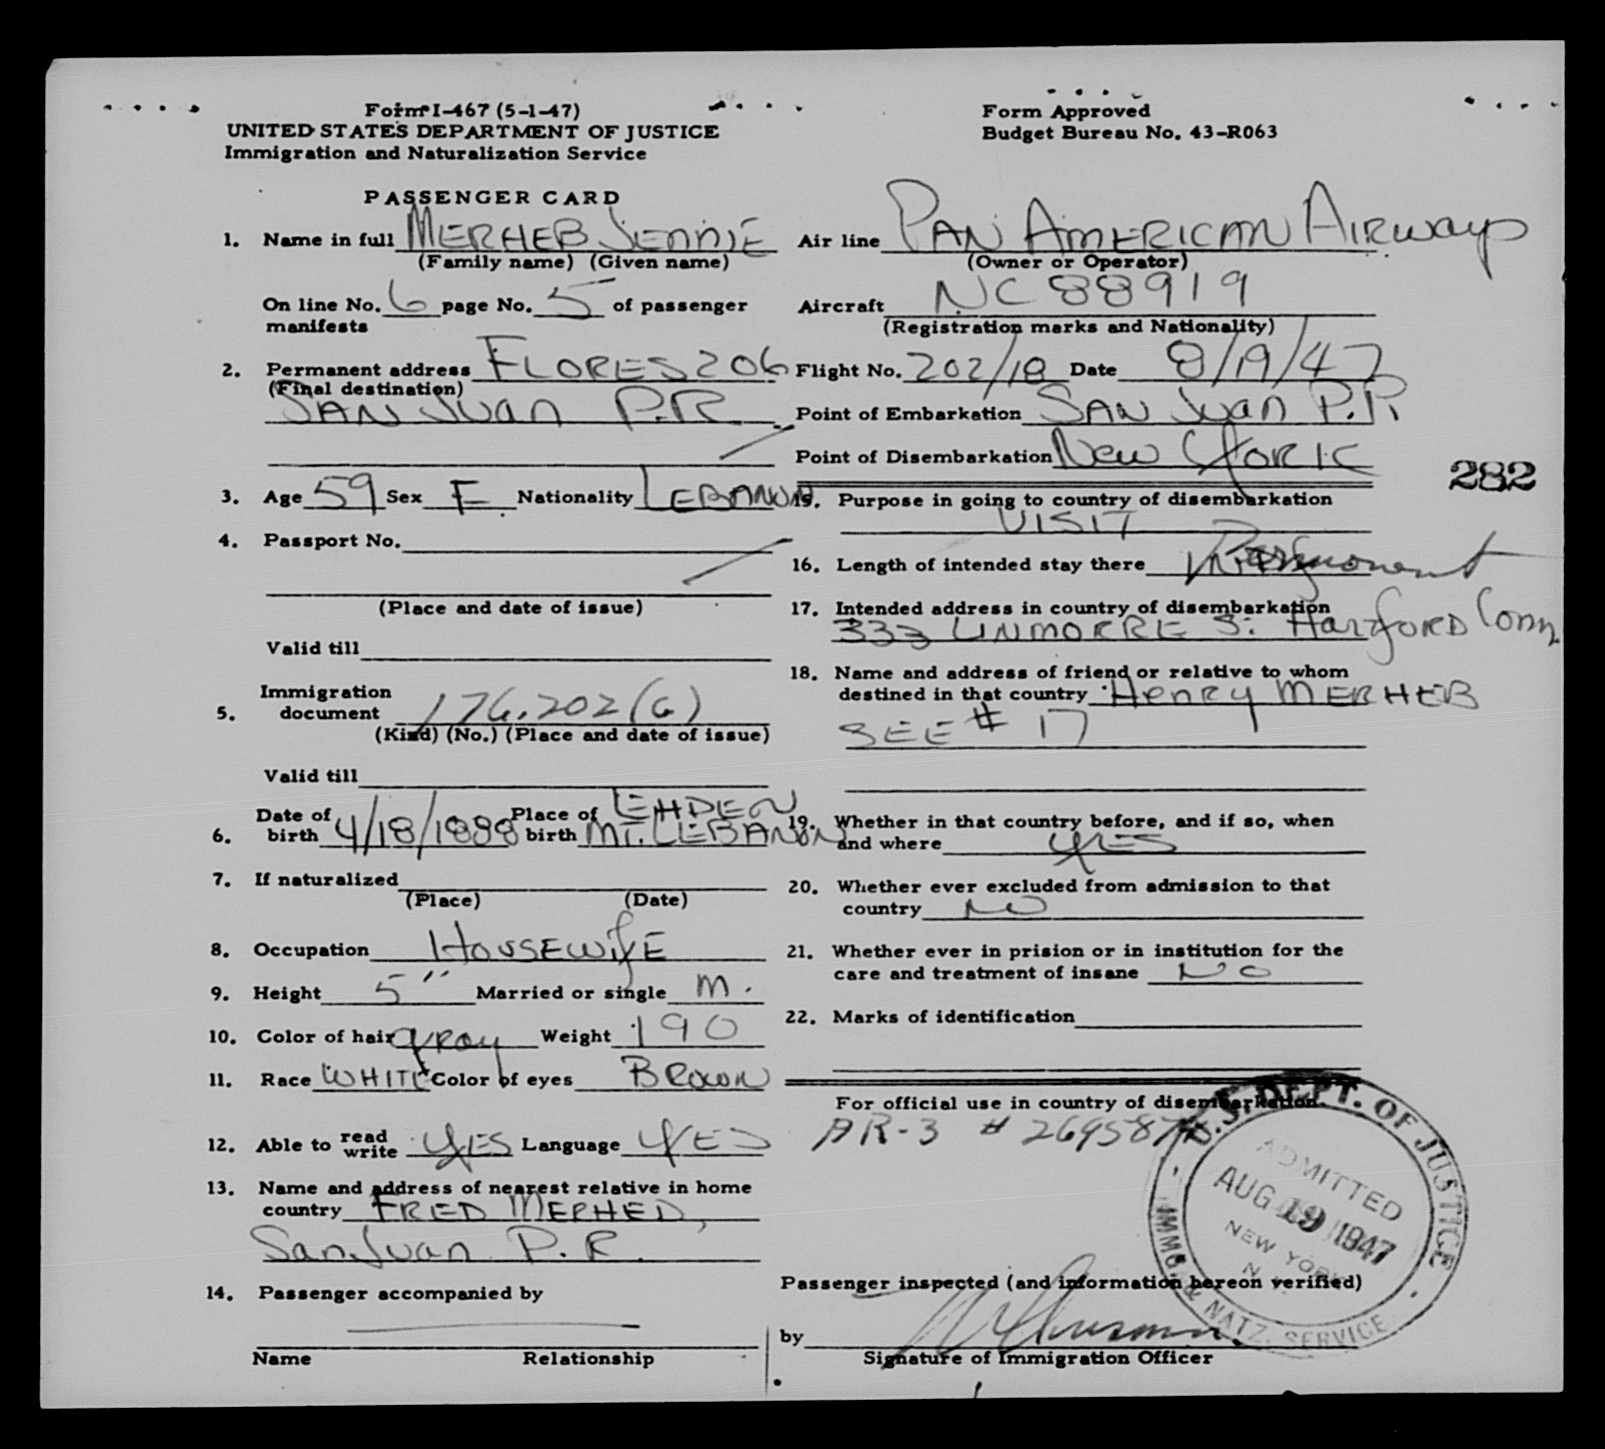 Form I-467 (5-1-47)
UNITED STATES DEPARTMENT OF JUSTICE
Immigration and Naturalization Service
Form Approved
Budget Bureau No. 43-R063
PASSENGER CARD
1. Name in full MERHEB JENNIE
(Family name) (Given name)
On line No. 6 page No. 5 of passenger
manifests
2. Permanent address FLORES 206
(Final destination)
SAN JUAN P.R
3. Age 59 Sex F Nationality LEBANON
4. Passport No.
(Place and date of issue)
Valid till
5. Immigration
document 176,202(G)
(Kind) (No.) (Place and date of issue)
Valid till
6. Date of birth 4/18/1888 Place of birth EHDEN
MT. LEBANON
7. If naturalized
(Place) (Date)
8. Occupation HOUSEWIFE
9. Height 5" Married or single M.
10. Color of hair GRAY Weight 190
11. Race WHITE Color of eyes BROWN
12. Able to read write YES Language YES
13. Name and address of nearest relative in home
country FRED MERHEB,
San Juan P.R.
14. Passenger accompanied by
Name Relationship
Air line PAN AMERICAN AIRWAYS
(Owner or Operator)
Aircraft NC 88919
(Registration marks and Nationality)
Flight No. 202/18 Date 8/19/47
Point of Embarkation SAN JUAN P.R
Point of Disembarkation NEW YORK
282
15. Purpose in going to country of disembarkation
VISIT
16. Length of intended stay there Permonent
17. Intended address in country of disembarkation
333 S. HARTFORD Conn
18. Name and address of friend or relative to whom
destined in that country HENRY MERHEB
SEE # 17
19. Whether in that country before, and if so, when
and where YES
20. Whether ever excluded from admission to that
country NO
21. Whether ever in prision or in institution for the
care and treatment of insane NO
22. Marks of identification
For official use in country of disembarkation.
AR-3 #
U.S. DEPT. OF JUSTICE
ADMITTED
AUG 19 1947
NEW YORK
N.Y.
IMMG. & NATZ. SERVICE
Passenger inspected (and information hereon verified)
by
Signature of Immigration Officer